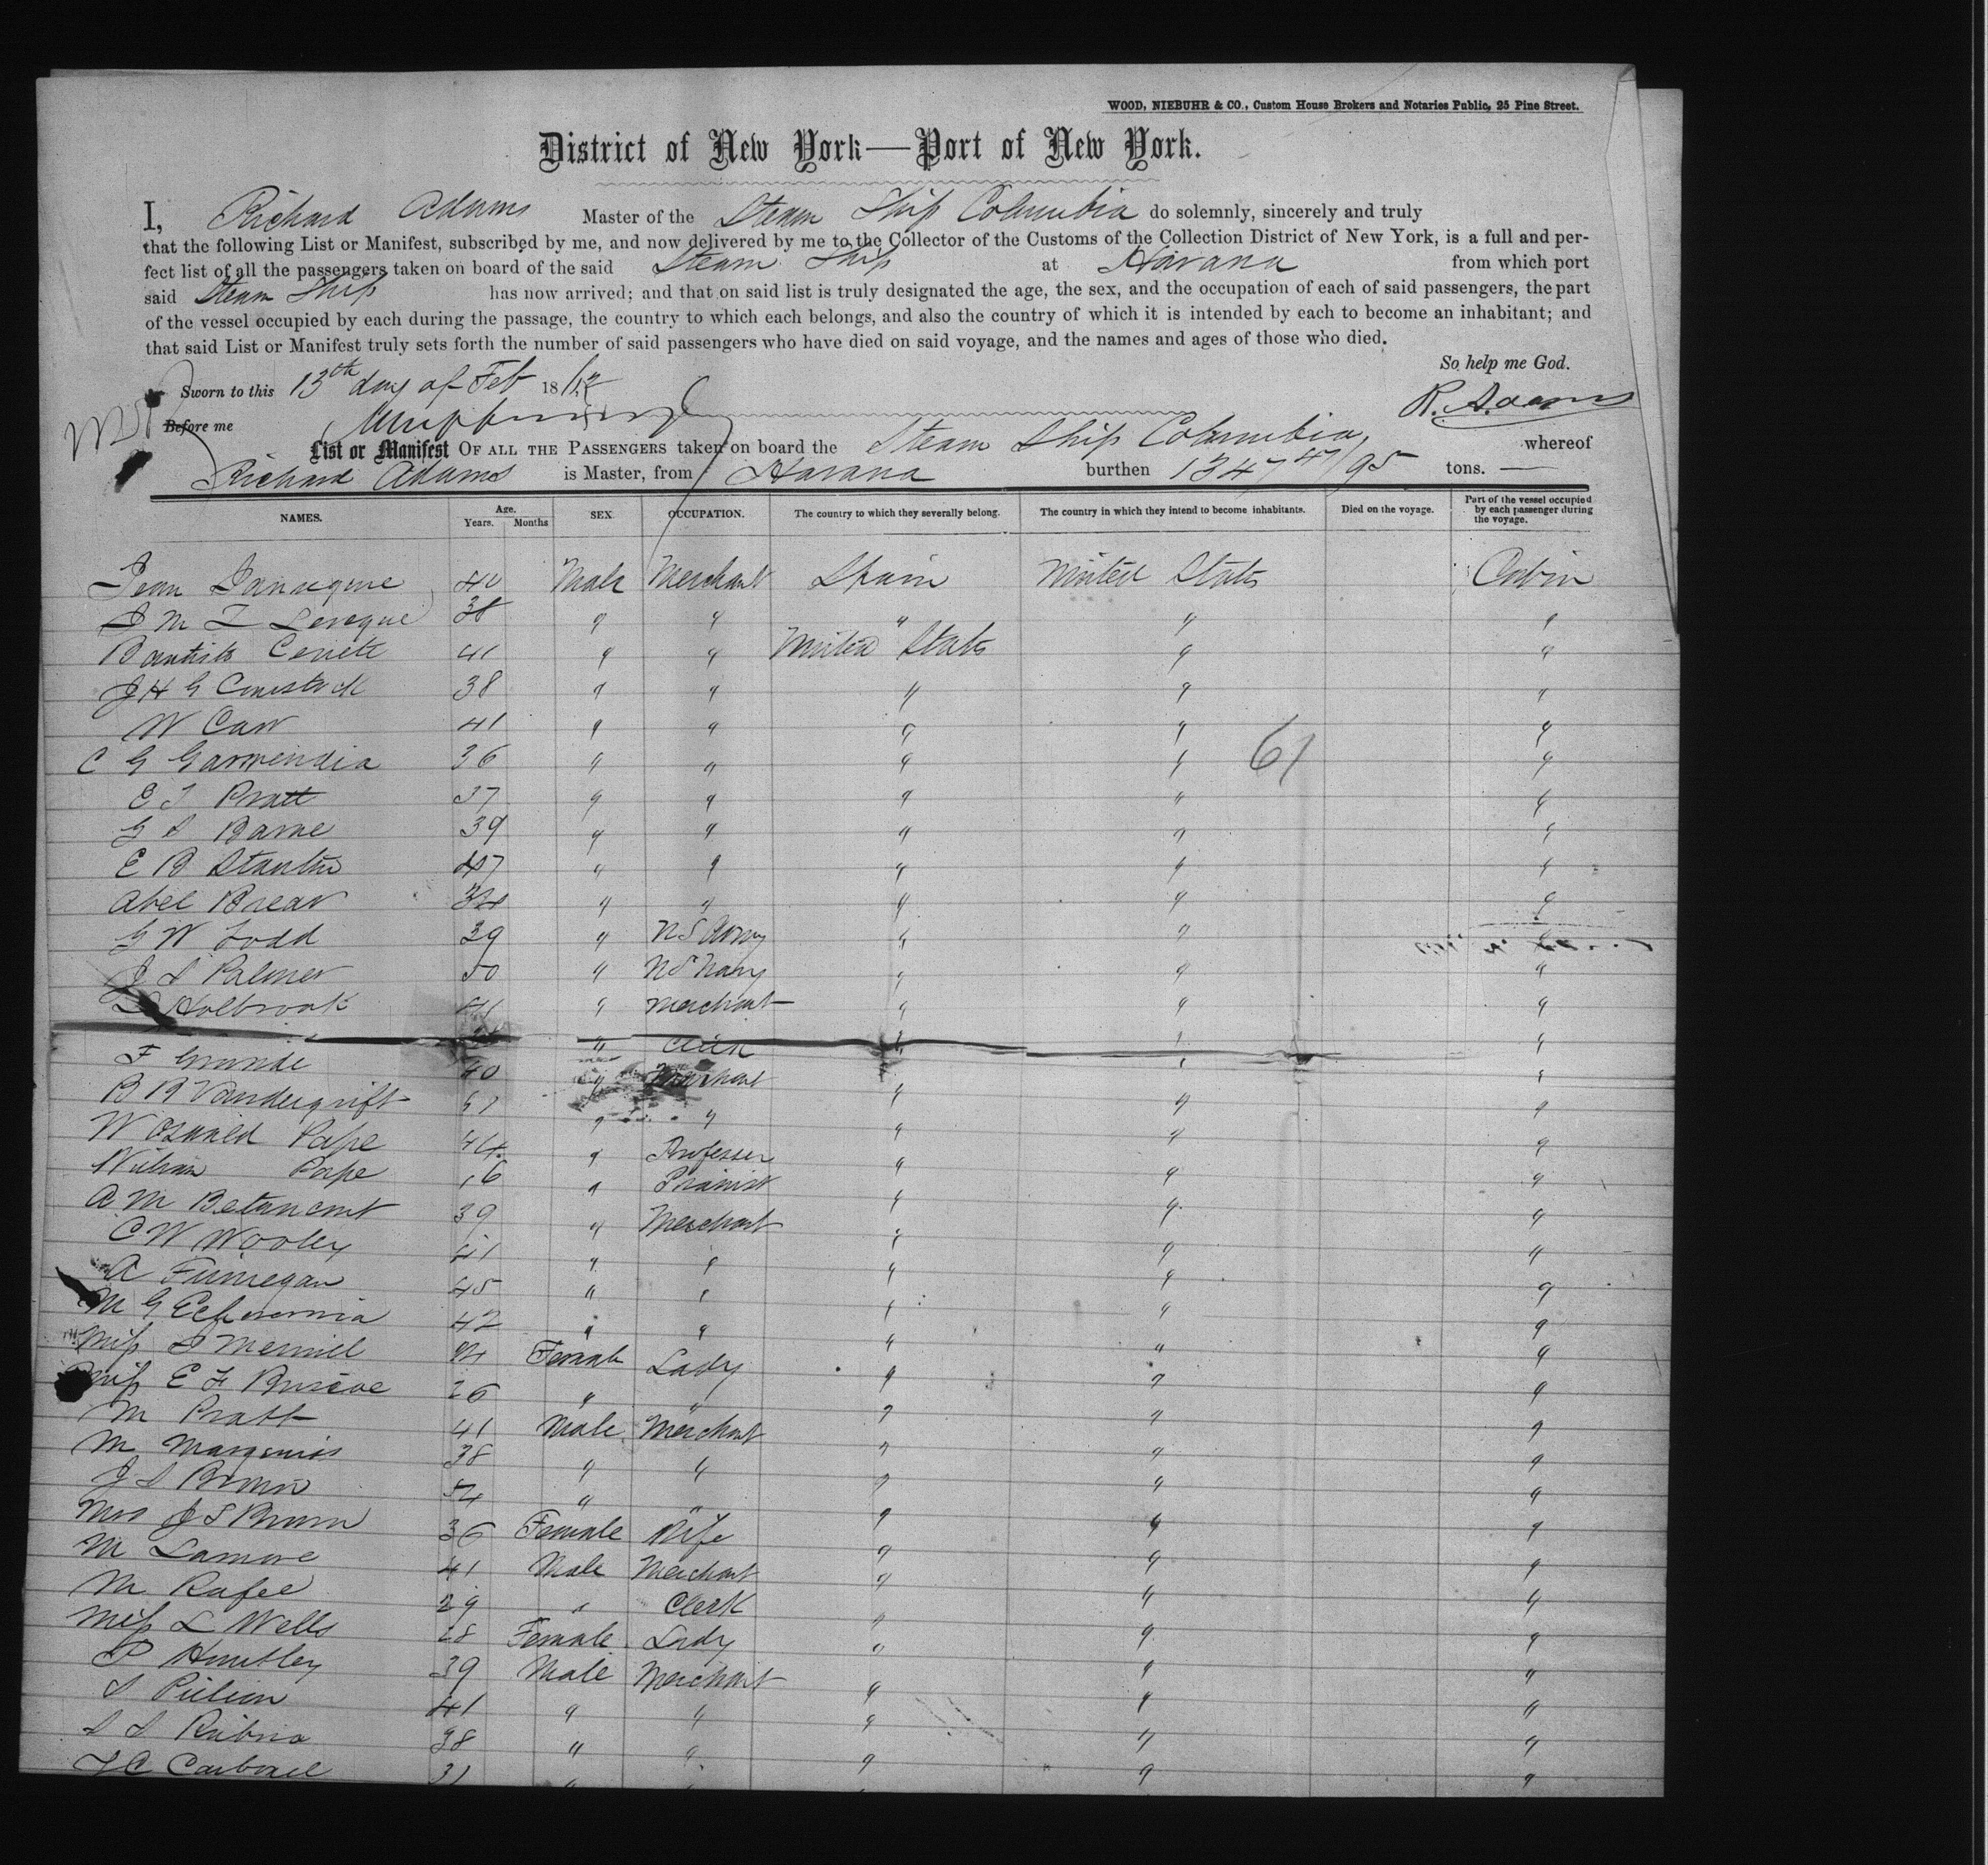 WOOD, NIEBUHR & CO., Custom House Brokers and Notaries Public, 25 Pine Street.
District of New York—Port of New York.
I, Richard Adams Master of the Steam Ship Columbia do solemnly, sincerely and truly
that the following List or Manifest, subscribed by me, and now delivered by me to the Collector of the Customs of the Collection District of New York, is a full and per-
fect list of all the passengers taken on board of the said Steam Ship at Havana from which port
said Steam Ship has now arrived; and that on said list is truly designated the age, the sex, and the occupation of each of said passengers, the part
of the vessel occupied by each during the passage, the country to which each belongs, and also the country of which it is intended by each to become an inhabitant; and
that said List or Manifest truly sets forth the number of said passengers who have died on said voyage, and the names and ages of those who died.
So help me God.
Sworn to this 13th day of Feb 18
R. Adams
Before me
List or Manifest OF ALL THE PASSENGERS taken on board the Steam Ship Columbia, whereof
Richard Adams is Master, from Havana burthen 1347 47/95 tons. —
NAMES. Age. Years. Months SEX. OCCUPATION. The country to which they severally belong. The country in which they intend to become inhabitants. Died on the voyage. Part of the vessel occupied by each passenger during the voyage.
40 Male Merchant Spain United States Cabin
38 " " " " "
41 " " United States " "
J H G Comstock 38 " " " " "
W Carr 41 " " " " "
61
C G Garmendia 36 " " " " "
E T Pratt 37 " " " " "
G S Barne 39 " " " " "
E B Stanton 47 " " " " "
Abel Brear " " " " "
G W Todd 39 " U S Army " " "
J S Palmer 50 " U S Navy " " "
Holbrook 41 " Merchant " " "
" Clerk " " "
F Grande 40 " Merchant " " "
B B Vandergrift " " " " "
W Oswald Pape 44 " Professor " " "
William Pape 16 " Pianist " " "
A M Betancourt 39 " Merchant " " "
C W Wooley 41 " " " " "
A Finnegan 45 " " " " "
M G Echeverria 42 " " " " "
Miss S Merrill Female Lady " " "
Miss E F Briscoe 26 " " " " "
M Pratt 41 Male Merchant " " "
M Marquis 38 " " " " "
J S Brown 54 " " " " "
Mrs J S Brown 36 Female Wife " " "
M Lamore 41 Male Merchant " " "
M Rafee 29 " Clerk " " "
Miss L Wells 28 Female Lady " " "
P Huntley 39 Male Merchant " " "
41 " " " " "
38 " " " " "
31 " " " " "